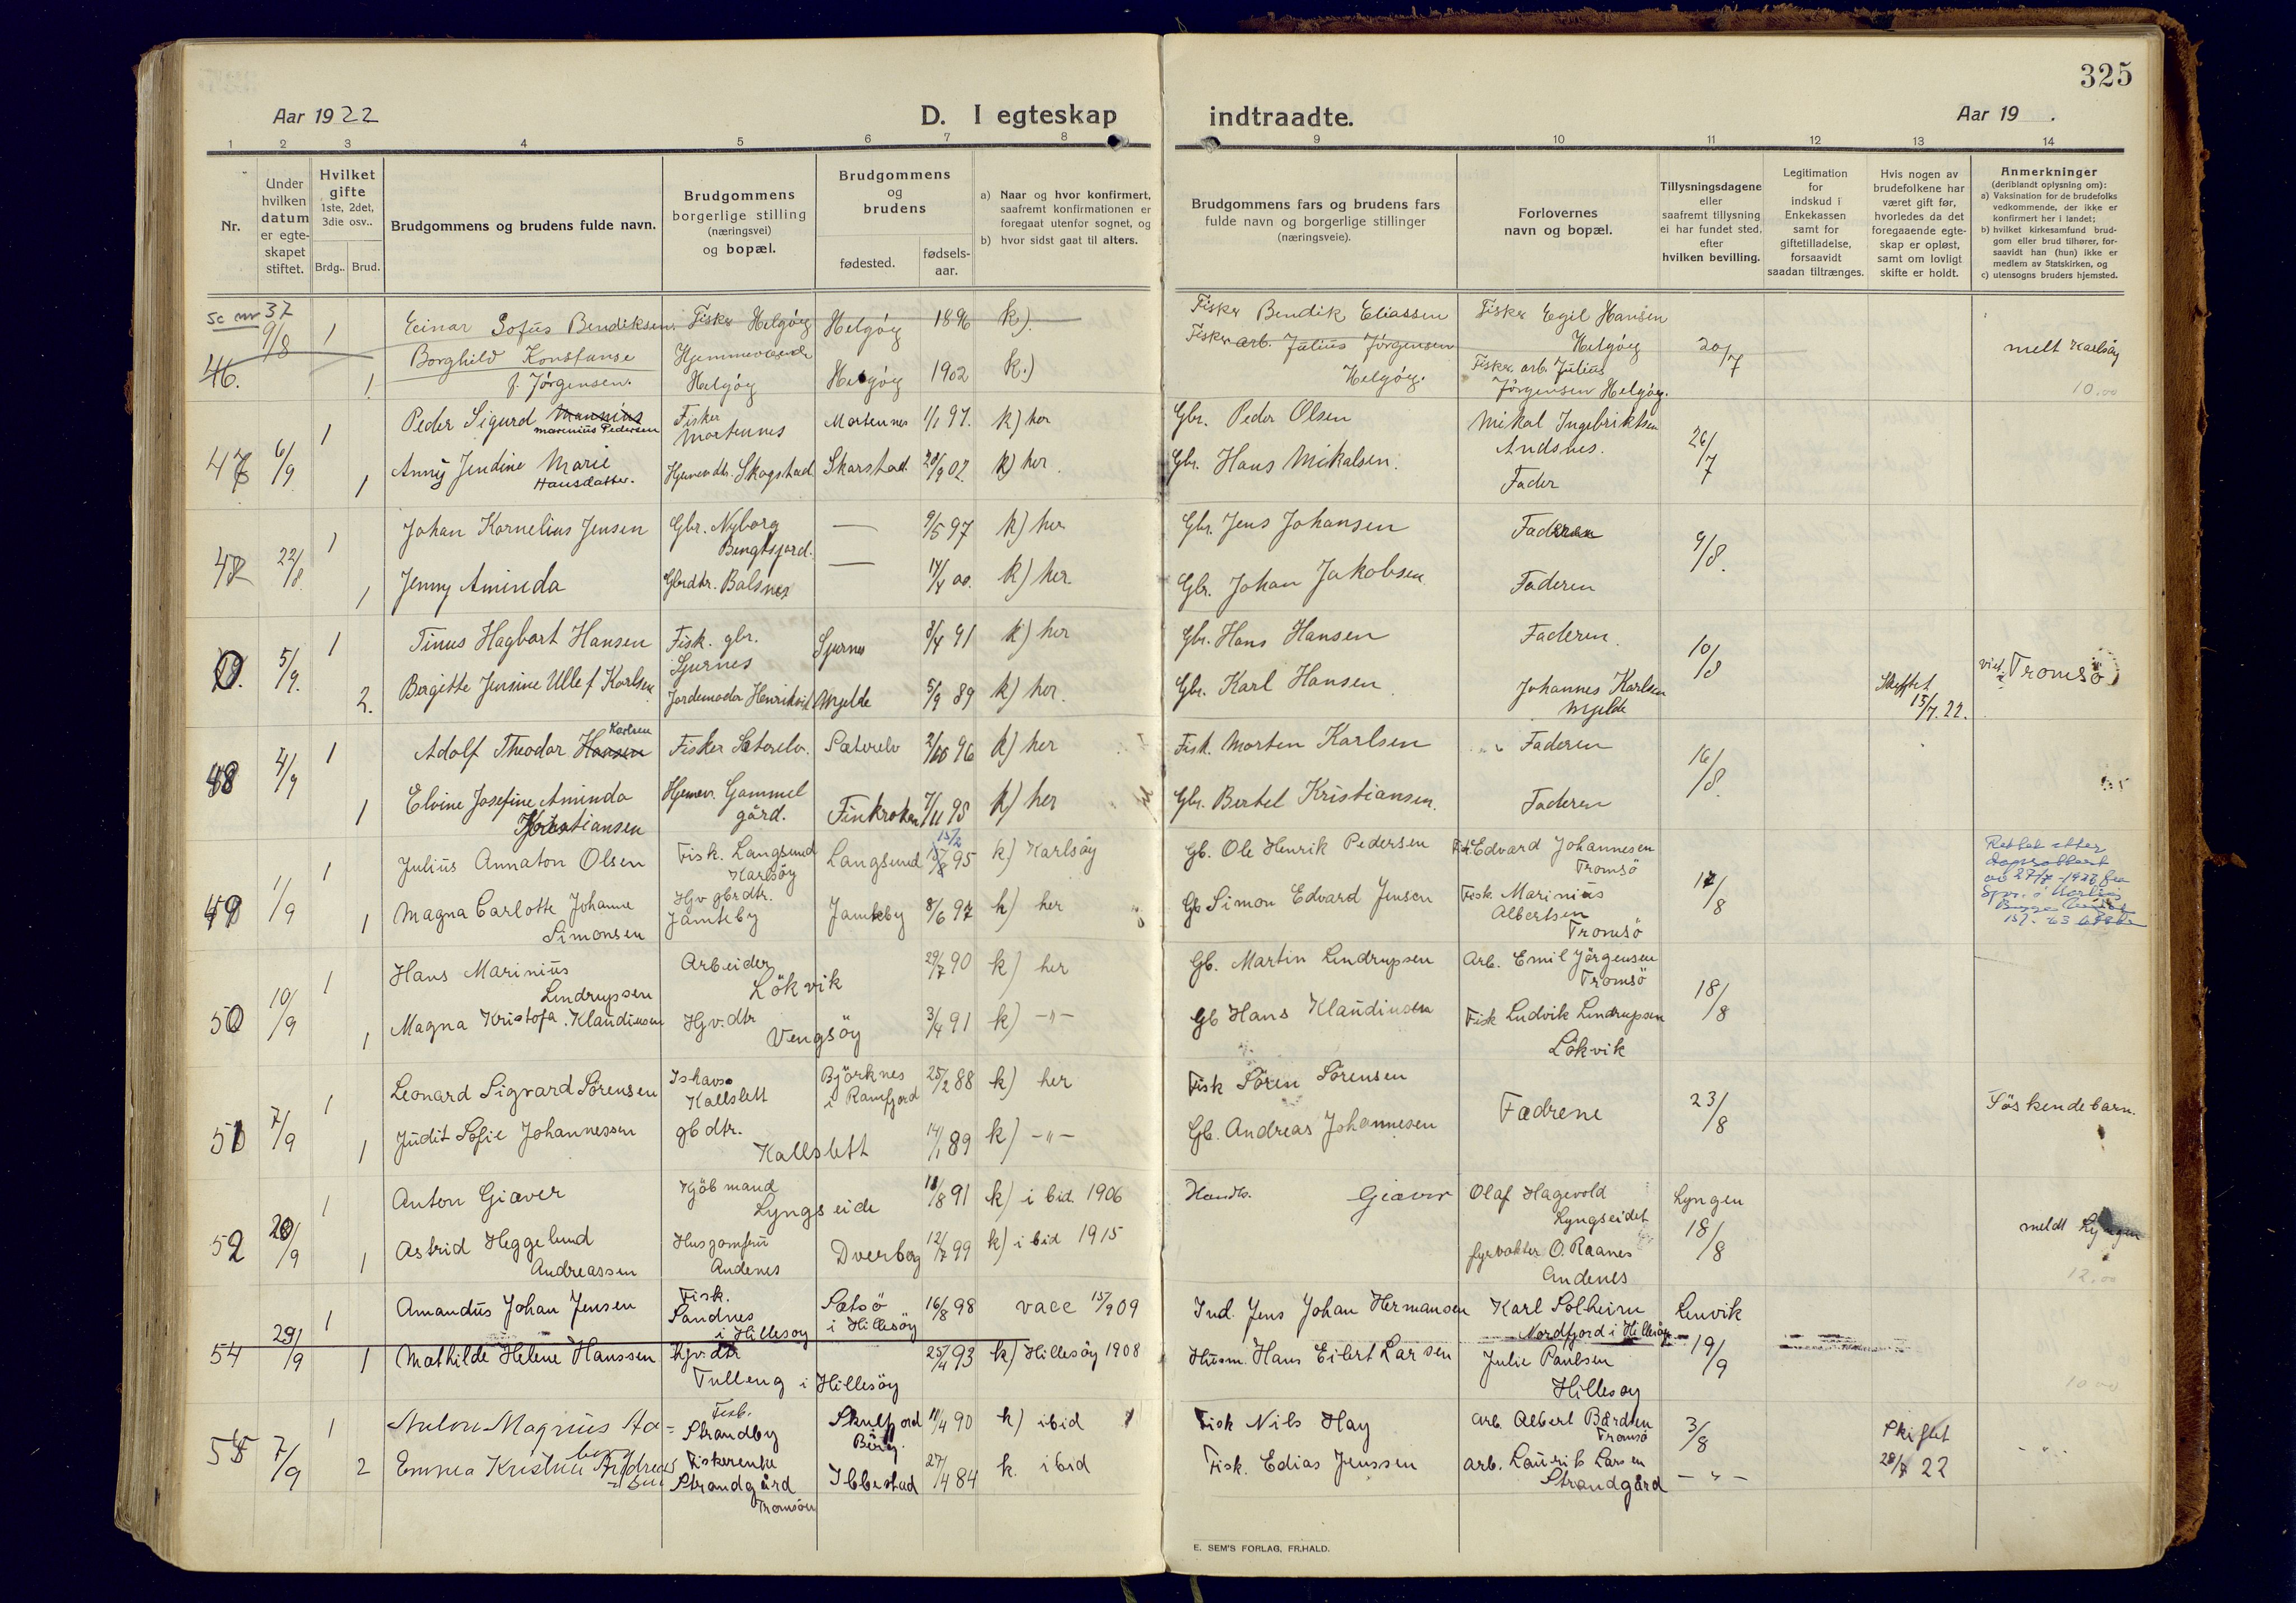 325
Aar 1922
D. I egteskap
indtraadte.
Aar 19 .
1 2 3 4 5 6 7 8 9 10 11 12 13 14
Nr.
Under hvilken datum er egteskapet stiftet.
Hvilket gifte 1ste, 2det, 3die osv..
Brdg.. Brud.
Brudgommens og brudens fulde navn.
Brudgommens borgerlige stilling (næringsvei) og bopæl.
Brudgommens og brudens
fødested.
fødsels-aar.
a) Naar og hvor konfirmert, saafremt konfirmationen er foregaat utenfor sognet, og
b) hvor sidst gaat til alters.
Brudgommens fars og brudens fars fulde navn og borgerlige stillinger (næringsveie).
Forlovernes navn og bopæl.
Tillysningsdagene eller saafremt tillysning ei har fundet sted, efter hvilken bevilling.
Legitimation for indskud i Enkekassen samt for giftetilladelse, forsaavidt saadan tiltrænges.
Hvis nogen av brudefolkene har været gift før, hvorledes da det foregaaende egteskap er opløst, samt om lovligt skifte er holdt.
Anmerkninger (deriblandt oplysning om):
a) Vaksination for de brudefolks vedkommende, der ikke er konfirmert her i landet;
b) hvilket kirkesamfund brudgom eller brud tilhører, forsaavidt han (hun) ikke er medlem av Statskirken, og
c) utensogns bruders hjemsted.
se nr 37
46. 9/8 1 Einar Sofus Bendiksen. Fisker Helgöy Helgöy 1896 k). Fisker Bendik Eliassen Fisker Egil Hansen Helgöy 20/7 melt Karlsöy
1 Borghild Konstanse f. Jörgensen. Hjemmeværende Helgöy Helgöy 1902 k.) Fisker arb. Julius Jörgensen Helgöy. Fisker arb. Julius Jörgensen Helgöy. 10.00
47 6/9 1 Peder Sigurd Marinius Pedersen Fisker Mortennes Mortennes 1/1 97. k) her Gbr. Peder Olsen Mikal Ingebriktsen Andsnes. 26/7
1 Anny Jendine Marie Hansdatter. Hjemmev dtr. Skogstad Skarstad 20/9 02. k) her. Gbr. Hans Mikalsen. Fader
22/8 1 Johan Kornelius Jensen Gbr. Nyborg Bengtsjord. — 9/5 97 k) her Gbr. Jens Johansen Faderen 9/8.
1 Jenny Aminda Gbrdtr. Balsnes — 14/4 00. k) her. Gbr. Johan Jakobsen Faderen
5/9. 1 Tinus Hagbart Hansen Fisk. gbr. Sjurnes Sjurnes 3/4 91 k) her Gbr. Hans Hansen Faderen. 10/8
2. Bergitte Jensine Ulle f Karlsen. Jordemoder Henrikvik Mjelde 5/9 89 k) her. Gbr. Karl Hansen. Johannes Karlsen Mjelde Skiftet 15/7. 22. viet i Tromsö
48 1 Adolf Theodor Karlsen Fisker Sætereln. Sæterelv 2/10 96 k) her Fisk. Morten Karlsen Faderen 16/8.
1 Elvine Josefine Aminda Kristiansen Hjemmev. Gammelgård. Finkroken 7/11 95 k) her Gbr. Bertel Kristiansen. Faderen
49 1/9 1 Julius Annaton Olsen Fisk. Langsund Karlsöy Langsund 15/2 95 k) Karlsöy Gb. Ole Henrik Pedersen Fisk. Edvard Johannesen Tromsö 17/8
1 Magna Carlotte Johanne Simonsen Hjv gbrdtr. Jamteby Jamteby 8/6 97 k) her Gb Simon Edvard Jensen Fisk. Marinius Albertsen Tromsö
50 10/9 1 Hans Marinius Lendrupsen Arbeider Lökvik 29/7 90 k) her Gb. Martin Lendrupsen Arb. Emil Jörgensen Tromsö 18/8
1 Magna Kristofa. Klaudiusen Hjv. dtr Vengsöy 3/4 91 k) -"- Gb Hans Klaudiusen Fisk Ludvik Lendrupsen Lökvik
51 7/9 1 Leonard Sigvard Sörensen Ishavs. Kallslett Björknes i Ramfjord 25/2 88 k) her Fisk Sören Sörensen Fædrene 23/8 Söskendebarn.
1 Judit Sofie Johannessen gb dtr. Kallslett 14/1 89 k) -"- Gb. Andreas Johannesen
52 20/9 1 Anton Giæver Kjöbmand Lyngseide 18/8 91 k) i bid. 1906 Handls. Giæver Olaf Hagevold Lyngseidet Lyngen 18/8 meldt Lyngen
1 Astrid Heggelund Andreassen Husjomfru Andenes Dverberg 12/7 99 k) i bid 1915 fyrvokter O. Raanes Andenes 12.00
54 29/9 1 Amandus Johan Jensen Fisk. Sandnes i Hillesöy Sætsö i Hillesöy 16/8 98 vacc 15/9 09 Ind. Jens Johan Hermansen Karl Solheim Nordfjord i Hillesöy Lenvik 19/9
1 Mathilde Helene Hanssen Hjv. dtr Tulleng i Hillesöy 25/4 93 k) Hillesöy 1908 Husm. Hans Eilert Larsen Julie Paulsen Hillesöy 10.00
55 7/9 1 Anton Magnus Fisk. Strandby Skulfjord 11/4 90 k) ibid Fisk Nils Hay arb. Albert Bårdsen Tromsö 3/8 Skiftet 28/7 22
2 Emma Kristine Fiskerenke Strandgård Tromsöen Ibbestad 27/4 84 k. ibid Fisk. Edias Jenssen arb. Laurits Larsen Strandgård -"-
E. SEM'S FORLAG, FR.HALD.